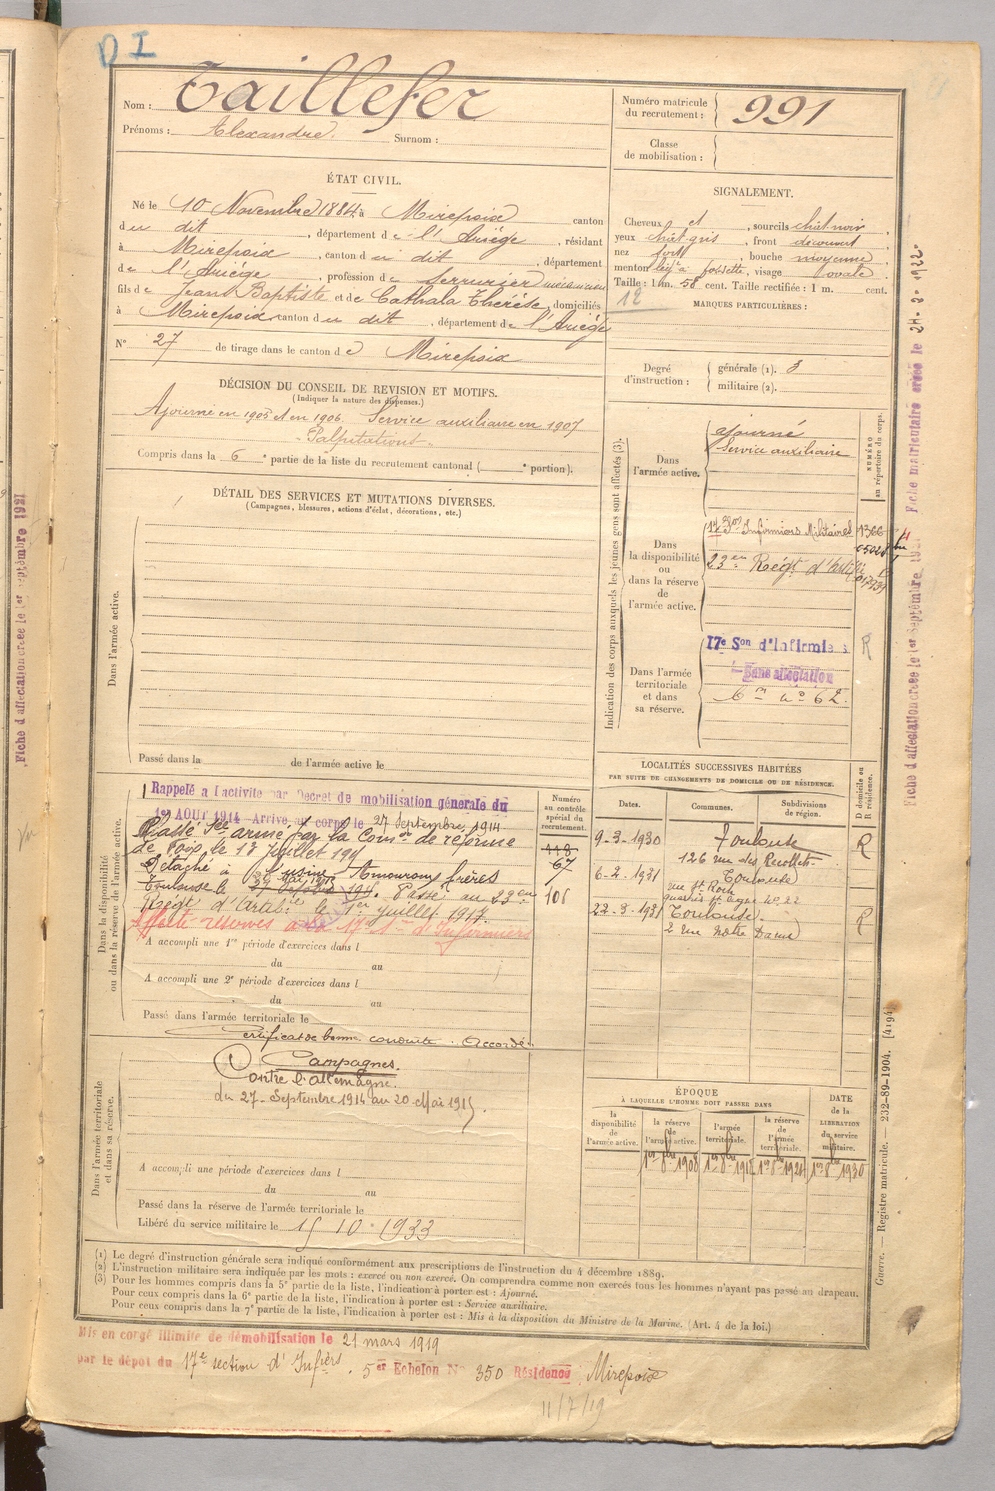 D I
Nom : Taillefer
Prénoms : Alexandre. Surnom :
Numéro matricule du recrutement : 991
Classe de mobilisation :
ÉTAT CIVIL.
Né le 10 Novembre 1884 à Mirepoix canton
du dit , département de l'Ariège , résidant
à Mirepoix , canton du dit , département
de l'Ariège , profession de serrurier mécanicien
fils de Jean Baptiste et de Cathala Thérèse, domiciliés
à Mirepoix canton du dit , département de l'Ariège
N° 27 de tirage dans le canton de Mirepoix
SIGNALEMENT.
Cheveux et , sourcils chât-noir ,
yeux chât-gris , front découvert ,
nez fort , bouche moyenne ,
menton à fossette , visage ovale .
Taille : 1 m. 58 cent. Taille rectifiée : 1 m. cent.
12
MARQUES PARTICULIÈRES :
Degré d'instruction : générale (1). 3
militaire (2).
DÉCISION DU CONSEIL DE REVISION ET MOTIFS.
(Indiquer la nature des dispenses.)
Ajourné en 1905 et en 1906. Service auxiliaire en 1907
- Palpitations -
Compris dans la 6e partie de la liste du recrutement cantonal ( e portion).
DÉTAIL DES SERVICES ET MUTATIONS DIVERSES.
(Campagnes, blessures, actions d'éclat, décorations, etc.)
Dans l'armée active.
Passé dans la de l'armée active le
Indication des corps auxquels les jeunes gens sont affectés (3).
NUMÉRO au répertoire du corps.
Dans l'armée active.
ajourné
Service auxiliaire
Dans la disponibilité ou dans la réserve de l'armée active.
17 Son Infirmiers Militaires 1366
05028
23en Régt d'Artie
Dans l'armée territoriale et dans sa réserve.
17e Son d'Infirmiers R
Sans affectation
Dans la disponibilité ou dans la réserve de l'armée active.
Rappelé à l'activité par Decret de mobilisation générale du
1er AOUT 1914 - Arrivé au corps le 27 Septembre 1914.
Passé Sce armé par la Comon de réforme
de Foix le 13 Juillet 191
Détaché à l'usine Amouroux frères
Toulouse le Passé au 23en
Régt d'Artie le 1er juillet 1917.
Affecté réserves à la 17e Son d'Infirmiers
A accompli une 1re période d'exercices dans l
du au
A accompli une 2e période d'exercices dans l
du au
Passé dans l'armée territoriale le
Numéro au contrôle spécial du recrutement.
118
67
106
LOCALITÉS SUCCESSIVES HABITÉES
PAR SUITE DE CHANGEMENTS DE DOMICILE OU DE RÉSIDENCE.
Dates. Communes. Subdivisions de région. D domicile ou R résidence.
9-3-1930 Toulouse R
126 rue des Récollets
6-2-1931 Toulouse
rue St Roch
22-3-1931 Toulouse R
2 rue Notre Dame
Dans l'armée territoriale et dans sa réserve.
Certificat de bonne conduite : Accordé.
Campagnes.
Contre l'Allemagne.
du 27 - Septembre 1914 au 20 - Mai 1915.
A accompli une période d'exercices dans l
du au
Passé dans la réserve de l'armée territoriale le
Libéré du service militaire le 15 10 1933
ÉPOQUE
À LAQUELLE L'HOMME DOIT PASSER DANS
la disponibilité de l'armée active. la réserve de l'armée active. l'armée territoriale. la réserve de l'armée territoriale.
DATE de la LIBÉRATION du service militaire.
1er 8bre 1908 1er 8bre 1918 1er 8bre 1924 1er 8bre 1930
(1) Le degré d'instruction générale sera indiqué conformément aux prescriptions de l'instruction du 4 décembre 1889.
(2) L'instruction militaire sera indiquée par les mots : exercé ou non exercé. On comprendra comme non exercés tous les hommes n'ayant pas passé au drapeau.
(3) Pour les hommes compris dans la 5e partie de la liste, l'indication à porter est : Ajourné.
Pour ceux compris dans la 6e partie de la liste, l'indication à porter est : Service auxiliaire.
Pour ceux compris dans la 7e partie de la liste, l'indication à porter est : Mis à la disposition du Ministre de la Marine. (Art. 4 de la loi.)
Mis en congé illimité de démobilisation le 21 mars 1919
par le dépôt du 17e section d'Infiers. 5er Echelon N° 350 Résidence Mirepoix
11/7/19
Guerre. — Registre matricule. — 232-89-1904. [4194]
Fiche d'affectation créée le 1er Septembre 1921
Fiche matriculaire créée le
Fiche d'affectation créée le 1er Septembre 1921